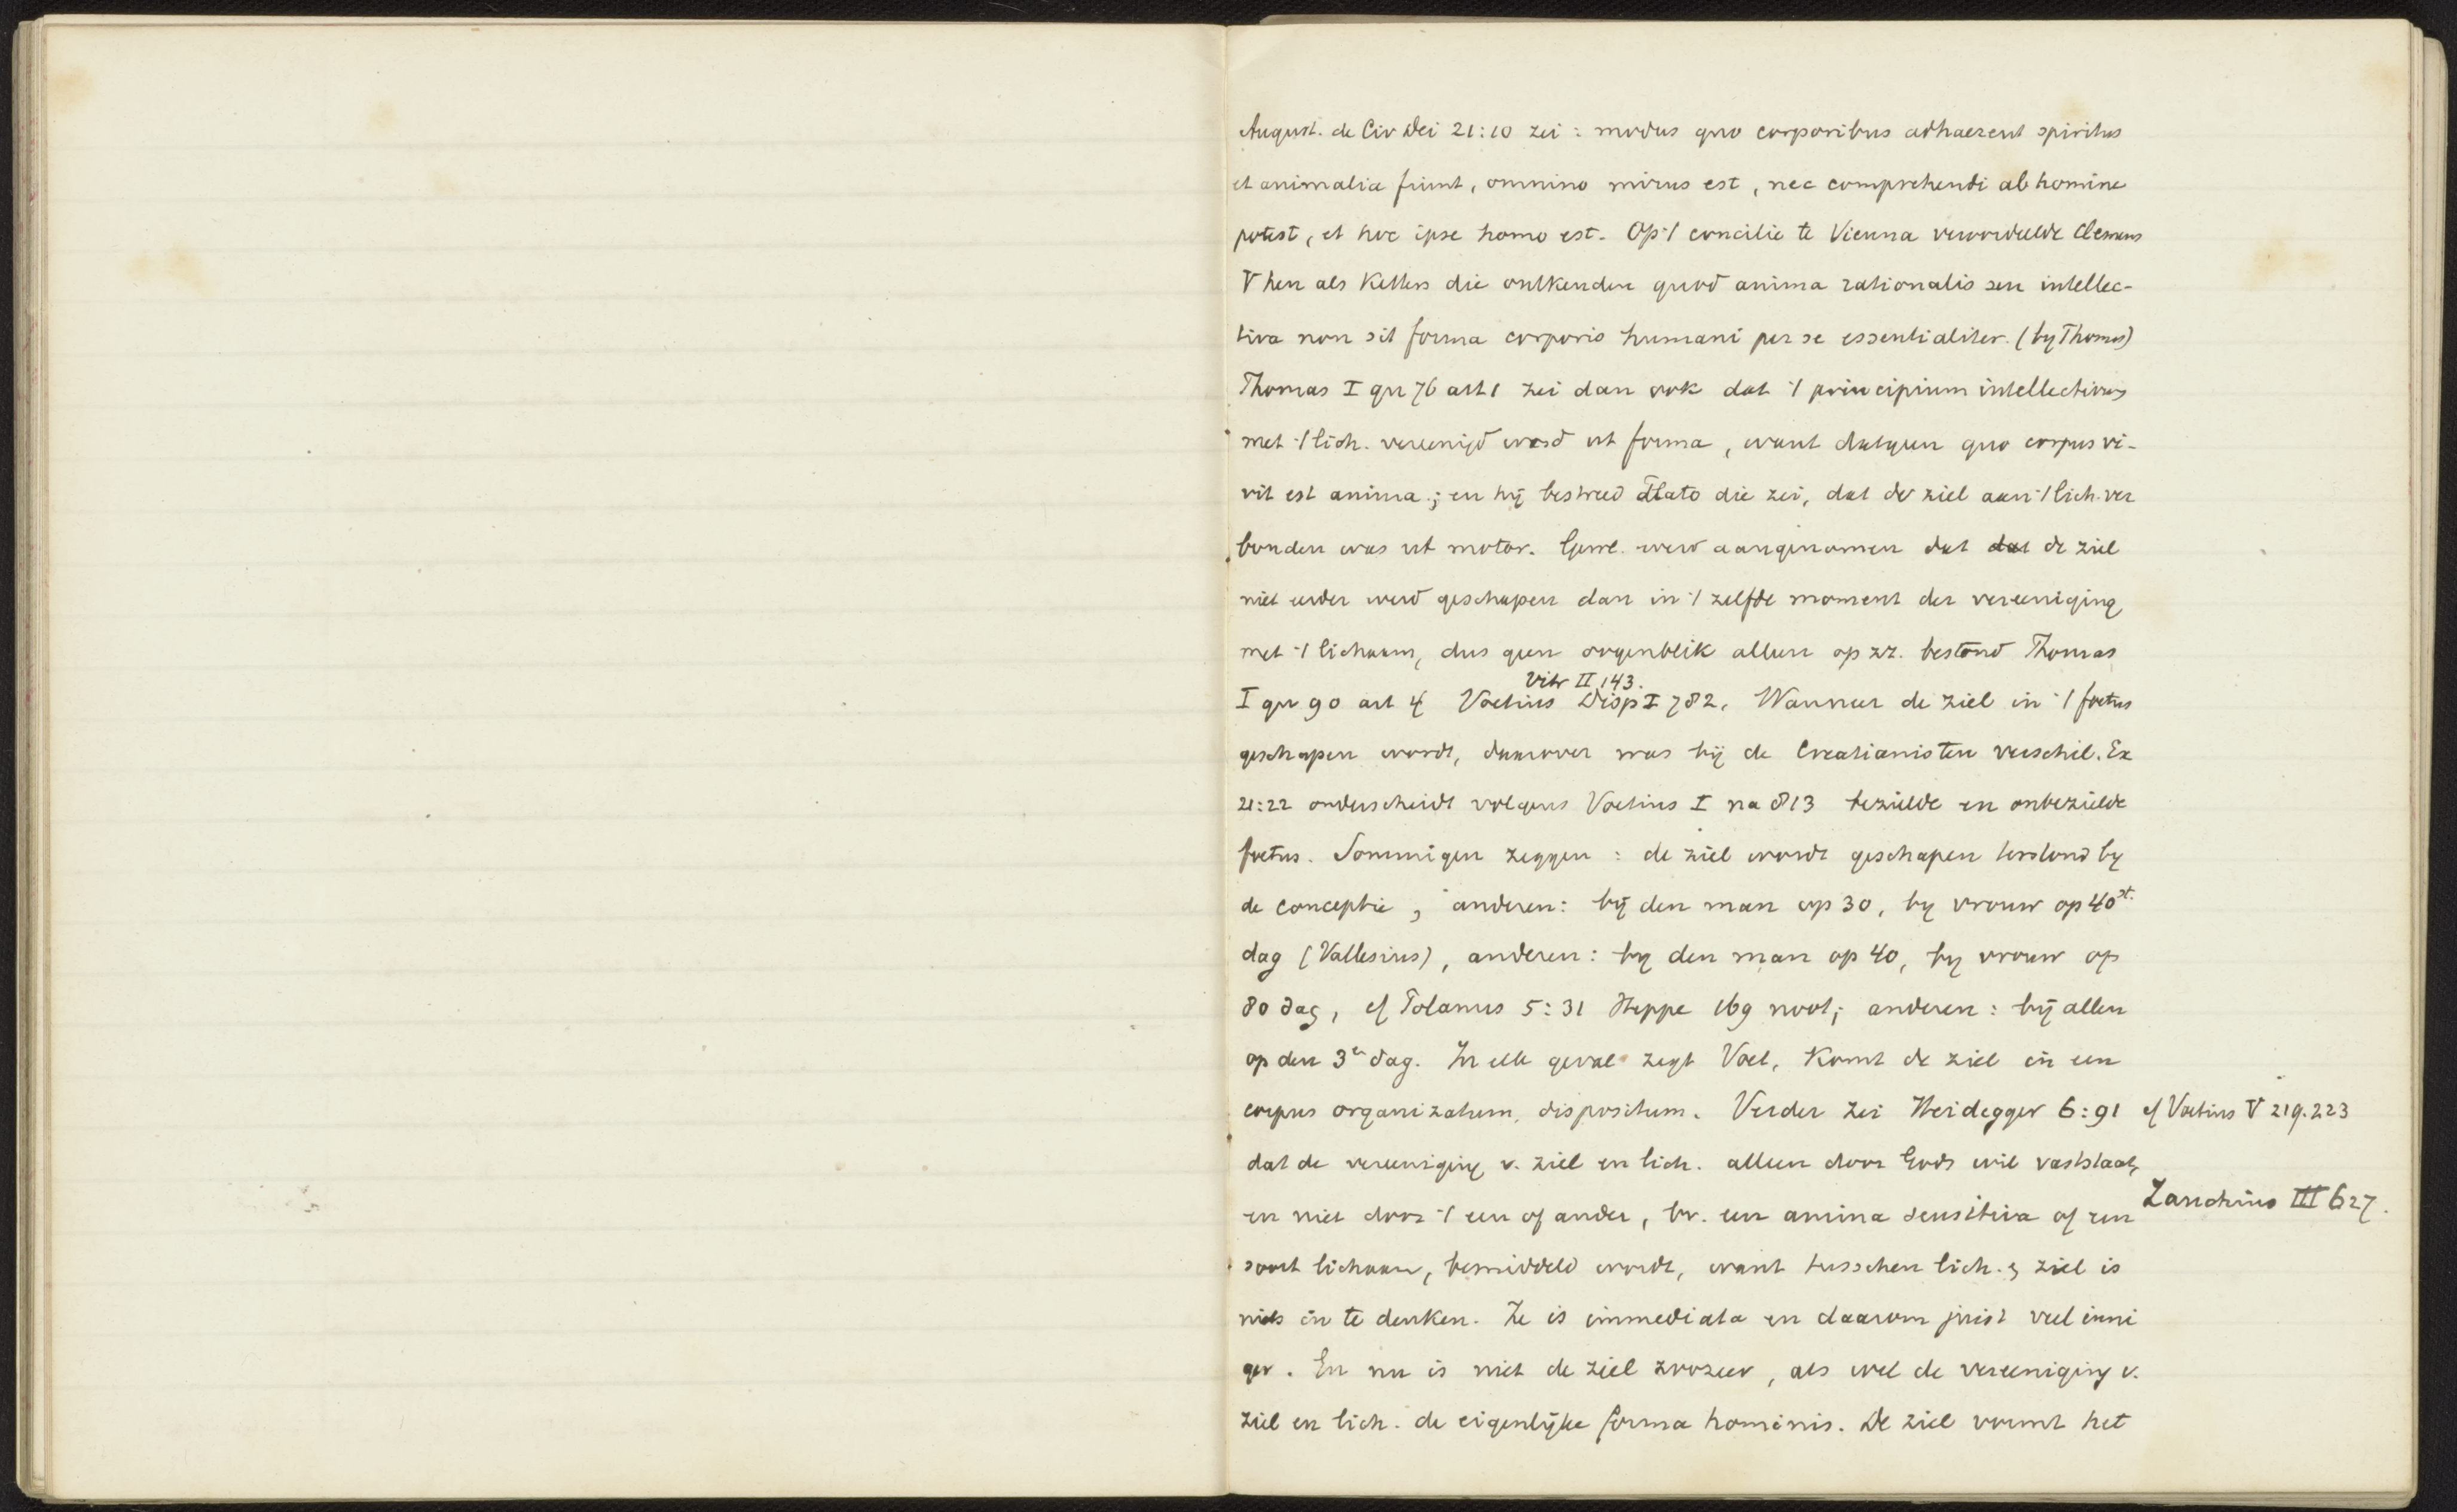 August. de Civ Dei 21:10 zei : modus quo corporibus adhaerent spiritus
et animalia fiunt, omnino mirus est, nec comprehendi ab homine
potest, et hoc ipse homo est. Op 't concilie te Vienna veroordeelde Clemens
V hen als ketters die ontkenden quod anima rationalis seu intellec-
tiva non sit forma corporis humani per se essentialiter. (by Thomas)
Thomas I qu 76 art 1 zei dan ook dat 't principium intellectivus
met 't lich. vereenigd werd ut forma, want datgeen quo corpus vi-
vit est anima ; en hij bestreed Plato die zei, dat de ziel aan 't lich. ver
bonden was ut motor. Gewl. werd aangenomen dat dat de ziel
niet eerder werd geschapen dan in 't zelfde moment der vereeniging
met 't lichaam, dus geen oogenblik alleen op zz. bestond Thomas
Vitr II 143.
I qu 90 art 4 Voetius Disp I 782. Wanneer de ziel in 't foetus
geschapen wordt, daarover was bij de Creatianisten verschil. Ex
21:22 onderscheidt volgens Voetius I na 813 bezielde en onbezielde
foetus. Sommigen zeggen : de ziel wordt geschapen terstond by
de conceptie, anderen: bij den man op 30, by vrouw op 40st.
dag (Vallesius), anderen: by den man op 40, by vrouw op
80 dag, cf Polanus 5:31 Heppe 169 noot; anderen : bij allen
op den 3en dag. In elk geval zegt Voet. komt de ziel in een
corpus organizatum, dispositum. Verder zei Heidegger 6:91 cf Voetius V 219.223
dat de vereeniging v. ziel en lich. alleen door Gods wil vaststaat,
en niet door 't een of ander, bv. een anima sensitiva of een Zanchius III 627.
soort lichaam, bemiddeld wordt, want tusschen lich. & ziel is
niets in te denken. Ze is immediata en daarom juist veel inni
ger. En nu is niet de ziel zoozeer, als wel de vereeniging v.
ziel en lich. de eigenlijke forma hominis. De ziel vormt het